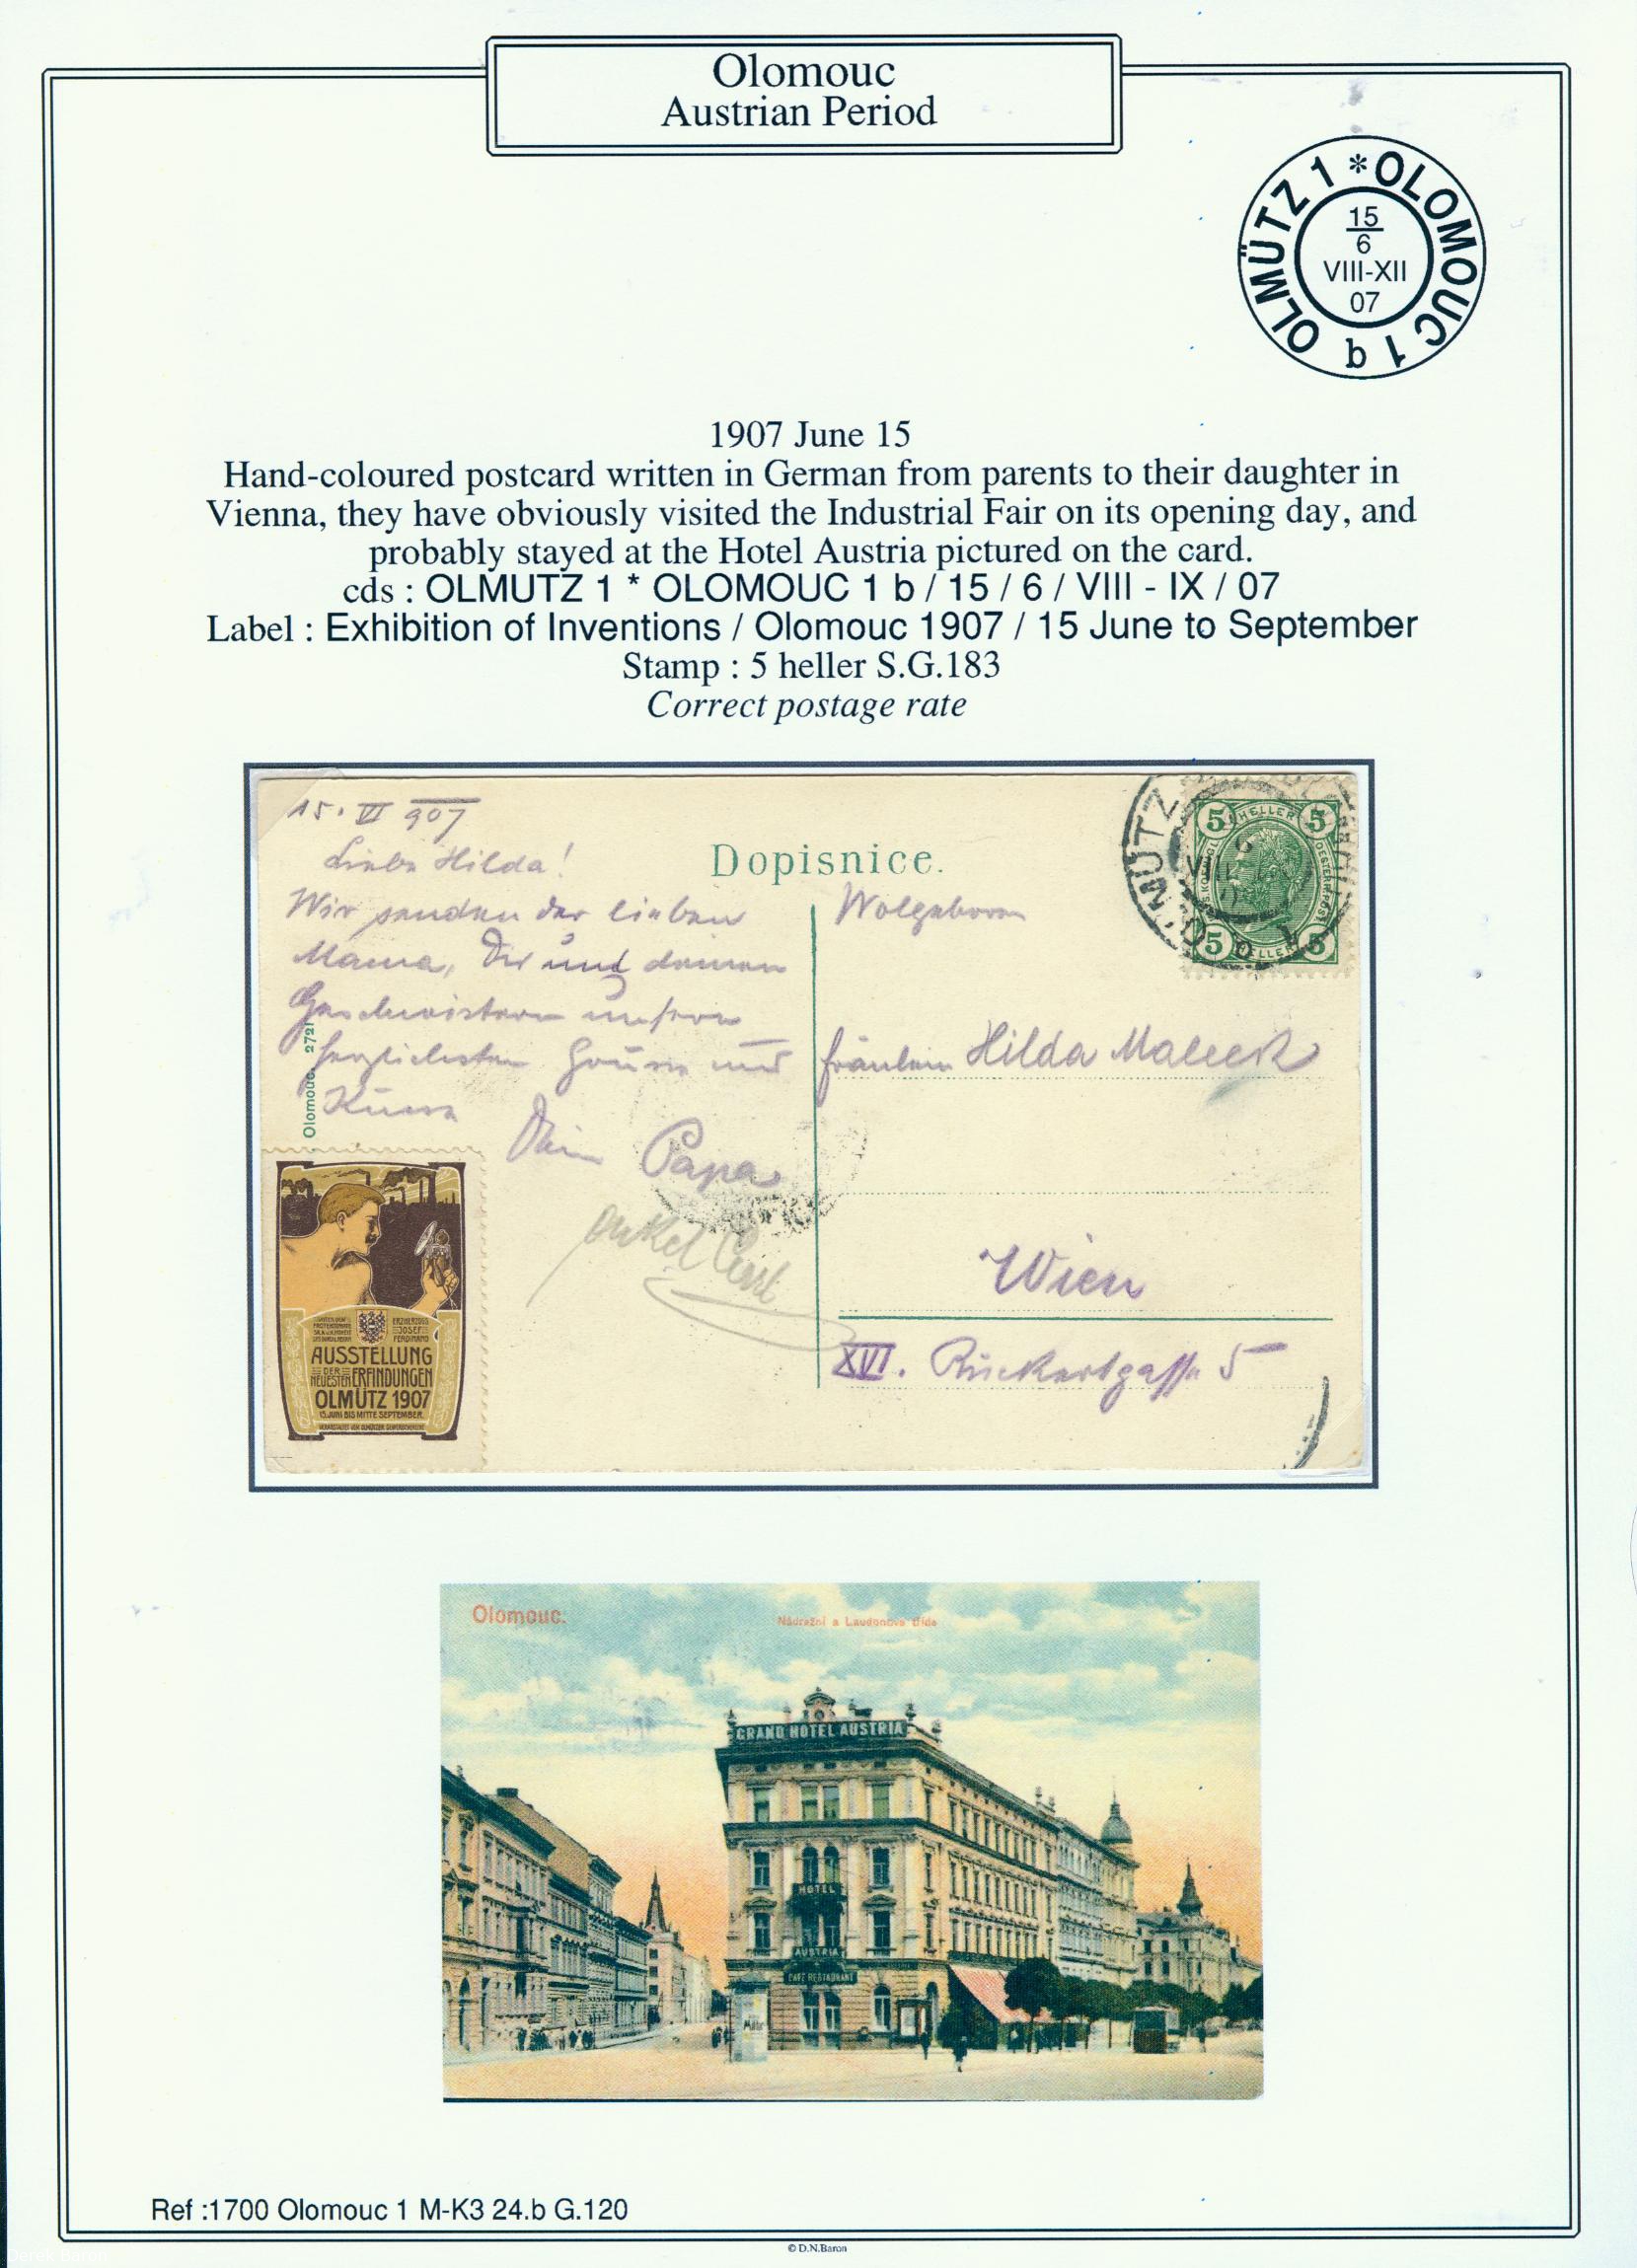 Olomouc
Austrian Period
OLMÜTZ 1 * OLOMOUC 1 b
15
6
VIII-XII
07
1907 June 15
Hand-coloured postcard written in German from parents to their daughter in
Vienna, they have obviously visited the Industrial Fair on its opening day, and
probably stayed at the Hotel Austria pictured on the card.
cds : OLMUTZ 1 * OLOMOUC 1 b / 15 / 6 / VIII - IX / 07
Label : Exhibition of Inventions / Olomouc 1907 / 15 June to September
Stamp : 5 heller S.G.183
Correct postage rate
15. VI 907
Liebe Hilda!
Wir senden der lieben
Mama, Dir und deinen
Geschwistern unsere
herzlichsten Grüsse und
Küsse
Dein Papa
Onkel
Olomouc. 2721
Dopisnice.
5 HELLER 5
5 HELLER 5
OLMÜTZ
Wolgeboren
Fräulein Hilda
Wien
XVI. Rückertgasse 5
ERZHERZOG
JOSEF
FERDINAND
AUSSTELLUNG
DER
NEUESTEN ERFINDUNGEN
OLMÜTZ 1907
15. JUNI BIS MITTE SEPTEMBER.
Olomouc.
Nádražní a Laudonova třída
GRAND HOTEL AUSTRIA
HOTEL
AUSTRIA
CAFE RESTAURANT
Ref :1700 Olomouc 1 M-K3 24.b G.120
© D.N.Baron
Derek Baron